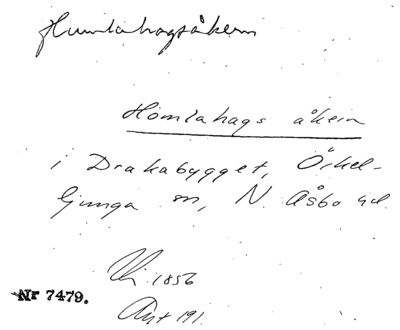 Humlahagsåkern
Homlahags åkern
i Drakabygget, Örkel-
ljunga sn, N. Åsbo hd.
1856
Nr 7479.
191